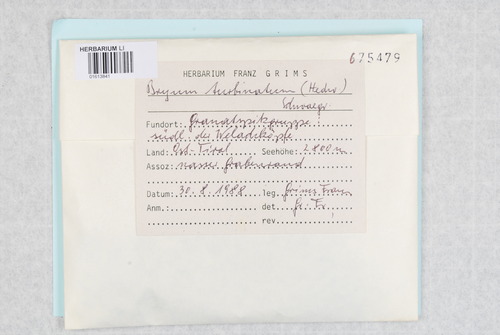 HERBARIUM LI
675479
HERBARIUM FRANZ GRIMS
Bryum turbinatum (Hedw)
Schwaegr.
Fundort: Granatspitzgruppe
südl. der
Land: Ost-Tirol Seehöhe: 2800m
Assoz: nasser Grabenrand
Datum: 30.8.1988 leg. Grims Franz
Anm.: det. Gr. Fr.
rev.